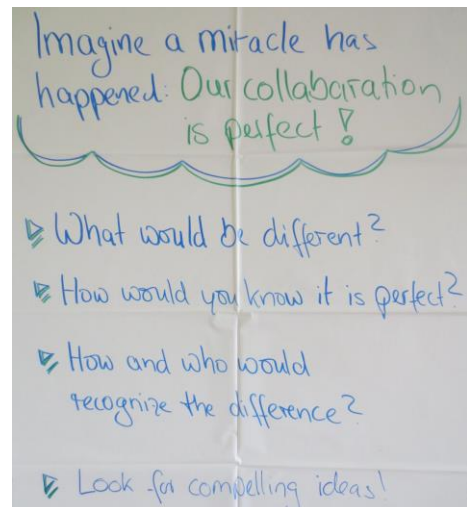 Imagine a miracle has
happened: Our collabaration
is perfect!
What would be different?
How would you know it is perfect?
How and who would
recognize the difference?
Look for compelling ideas!